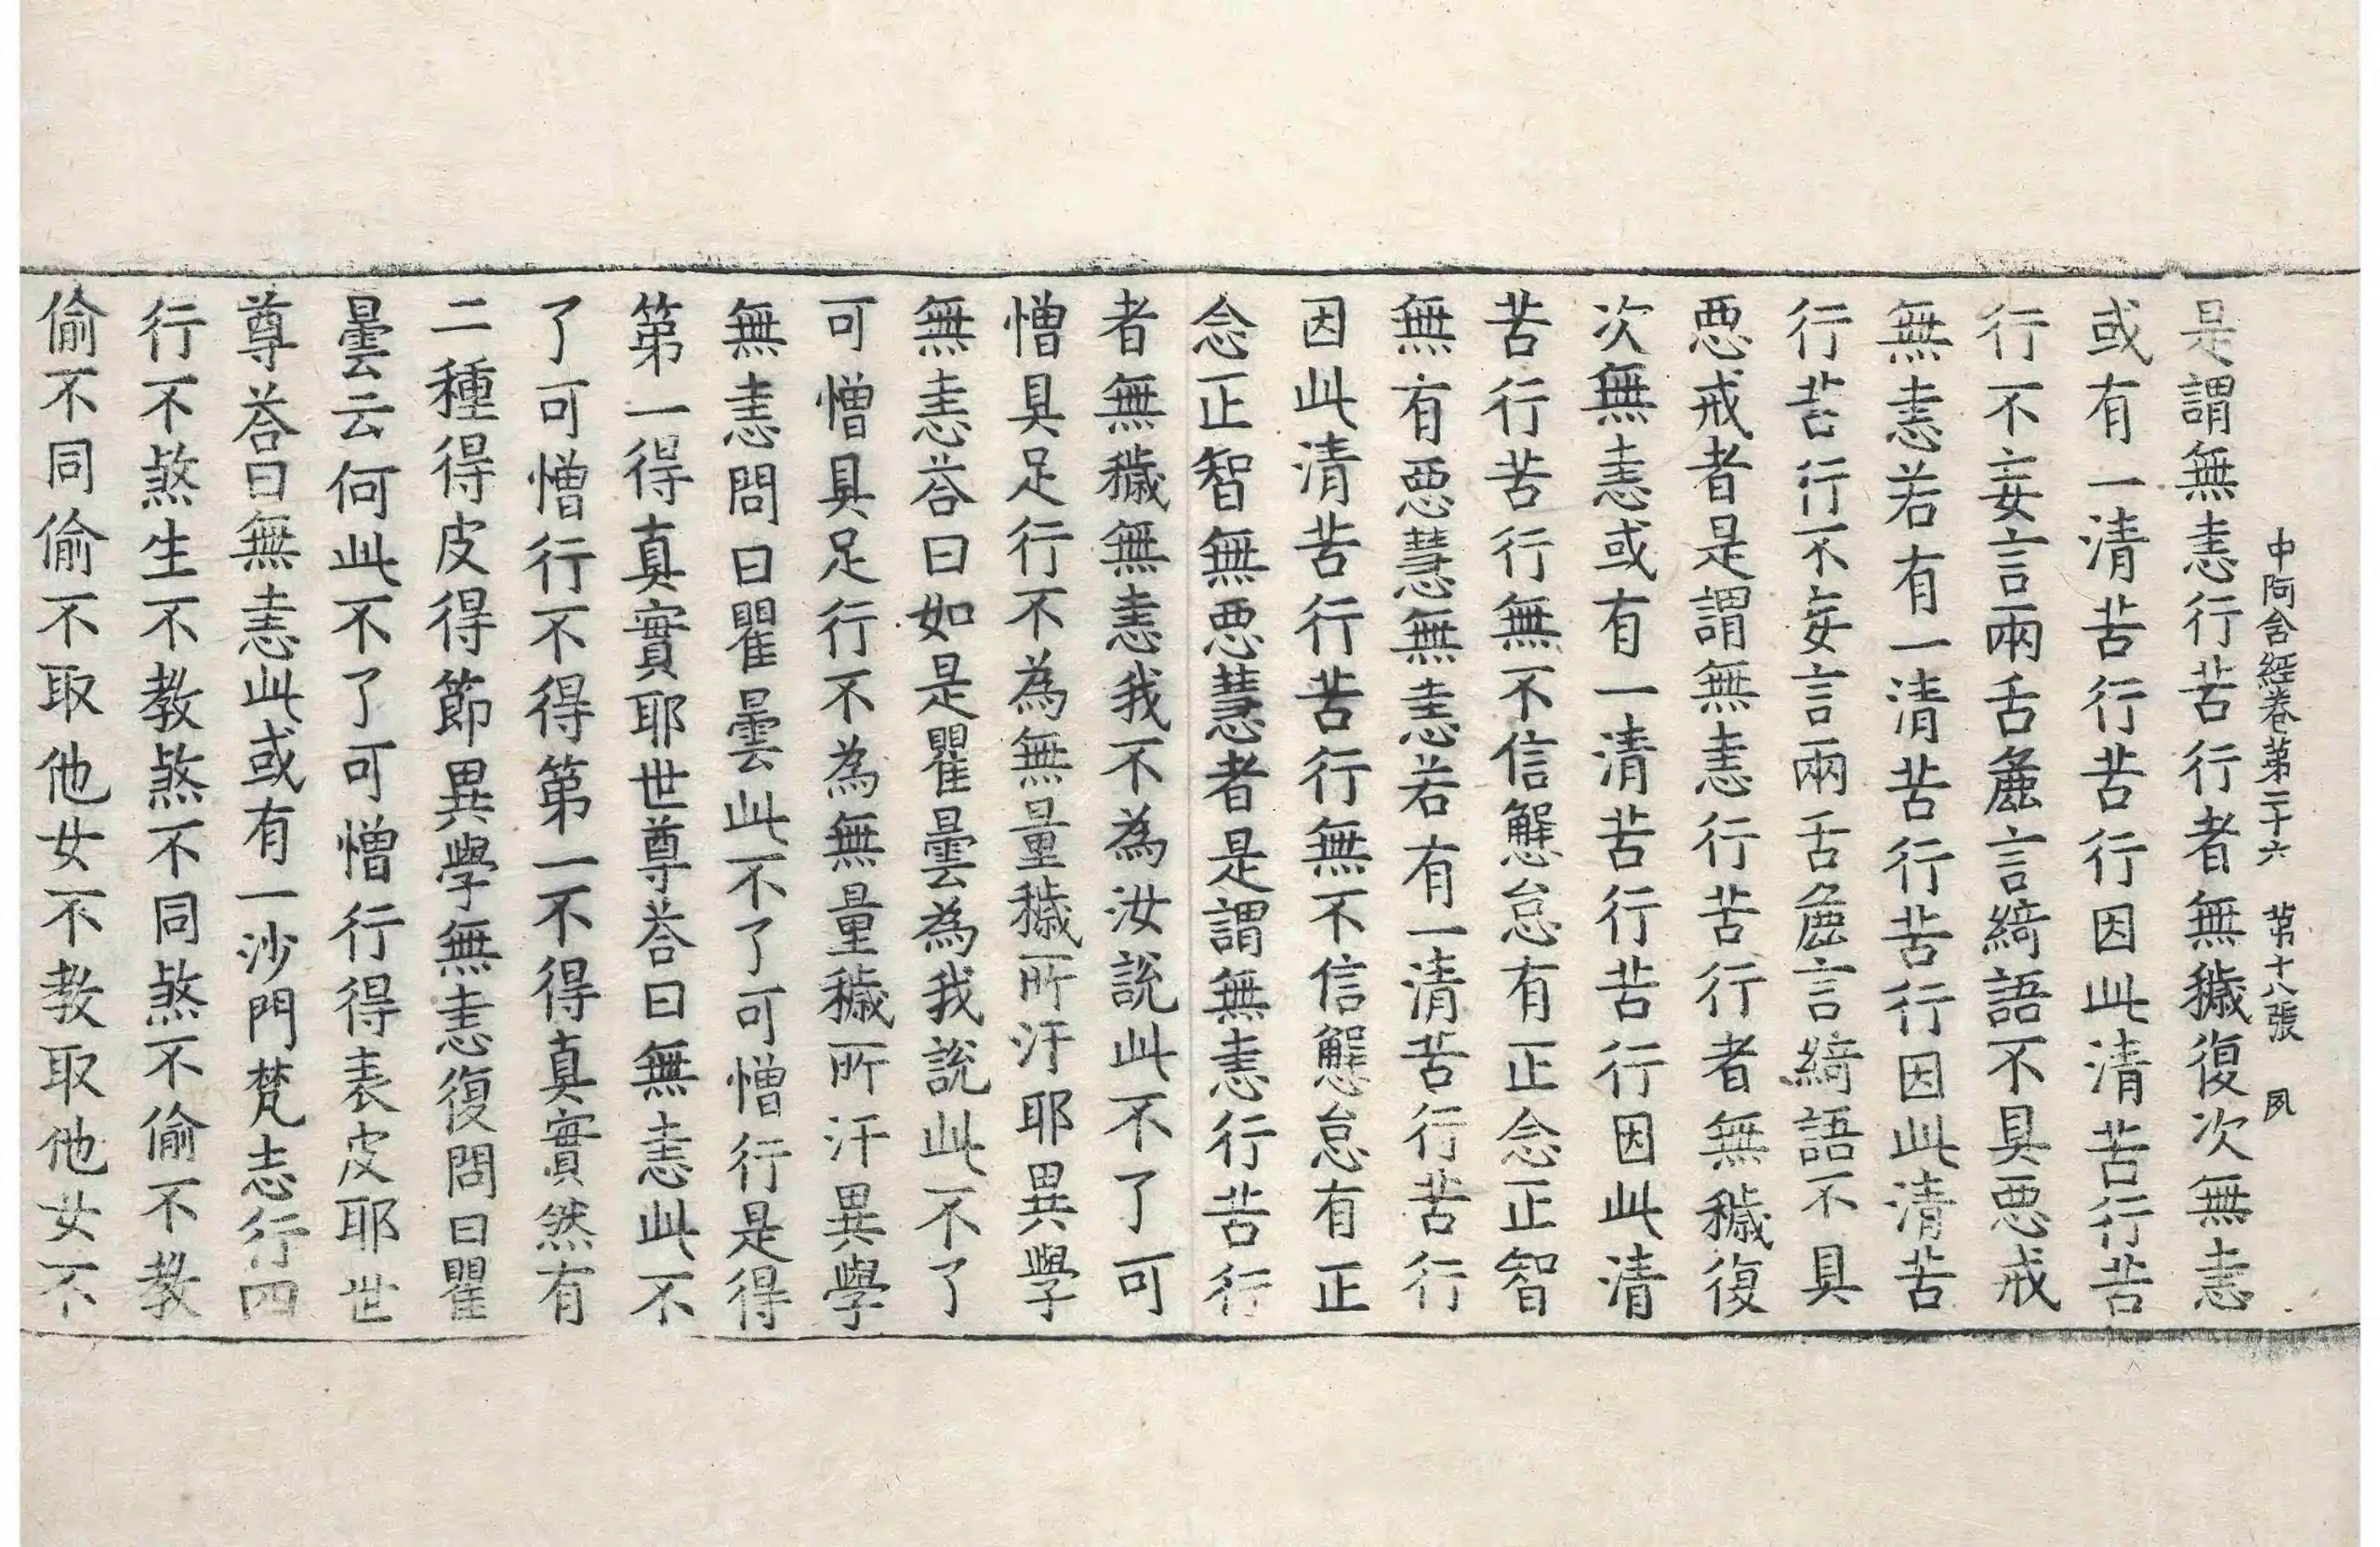 中阿含經卷第二十六　第十八張　夙
是謂無恚行苦行者無穢復次無恚
或有一清苦行苦行因此清苦行苦
行不妄言兩舌麁言綺語不具惡戒
無恚若有一清苦行苦行因此清苦
行苦行不妄言兩舌麁言綺語不具
惡戒者是謂無恚行苦行者無穢復
次無恚或有一清苦行苦行因此清
苦行苦行無不信懈怠有正念正智
無有惡慧無恚若有一清苦行苦行
因此清苦行苦行無不信懈怠有正
念正智無惡慧者是謂無恚行苦行
者無穢無恚我不為汝說此不了可
憎具足行不為無量穢所汙耶異學
無恚荅曰如是瞿曇為我說此不了
可憎具足行不為無量穢所汙異學
無恚問曰瞿曇此不了可憎行是得
第一得真實耶世尊荅曰無恚此不
了可憎行不得第一不得真實然有
二種得皮得節異學無恚復問曰瞿
曇云何此不了可憎行得表皮耶世
尊荅曰無恚此或有一沙門梵志行四
行不煞生不教煞不同煞不偷不教
偷不同偷不取他女不教取他女不